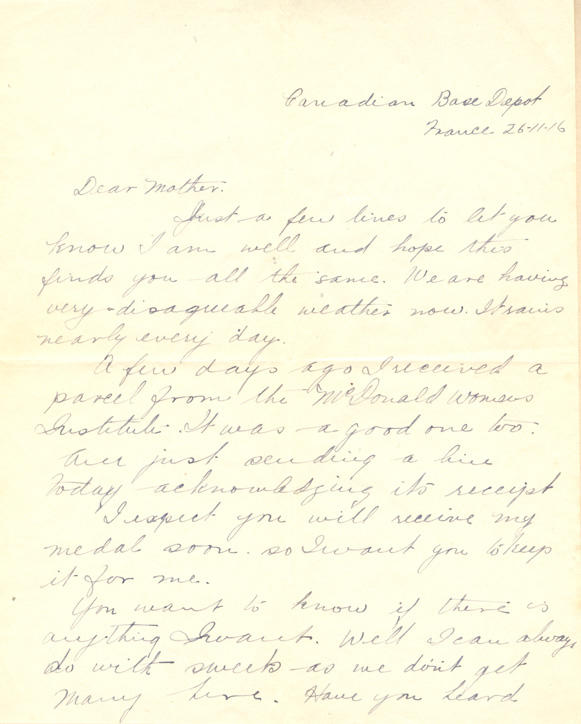 Canadian Base Depot
France 26-11-16
Dear Mother:
Just a few lines to let you
know I am well and hope this
finds you all the same. We are having
very disagreeable weather now. It rains
nearly every day.
A few days ago I received a
parcel from the McDonald Womens
Institute. It was a good one too.
Am just sending a line
today acknowledging its receipt
I expect you will receive my
medal soon. so I want you to keep
it for me.
You want to know if there is
anything I want. Well I can always
do with sweets as we don't get
many here. Have you heard